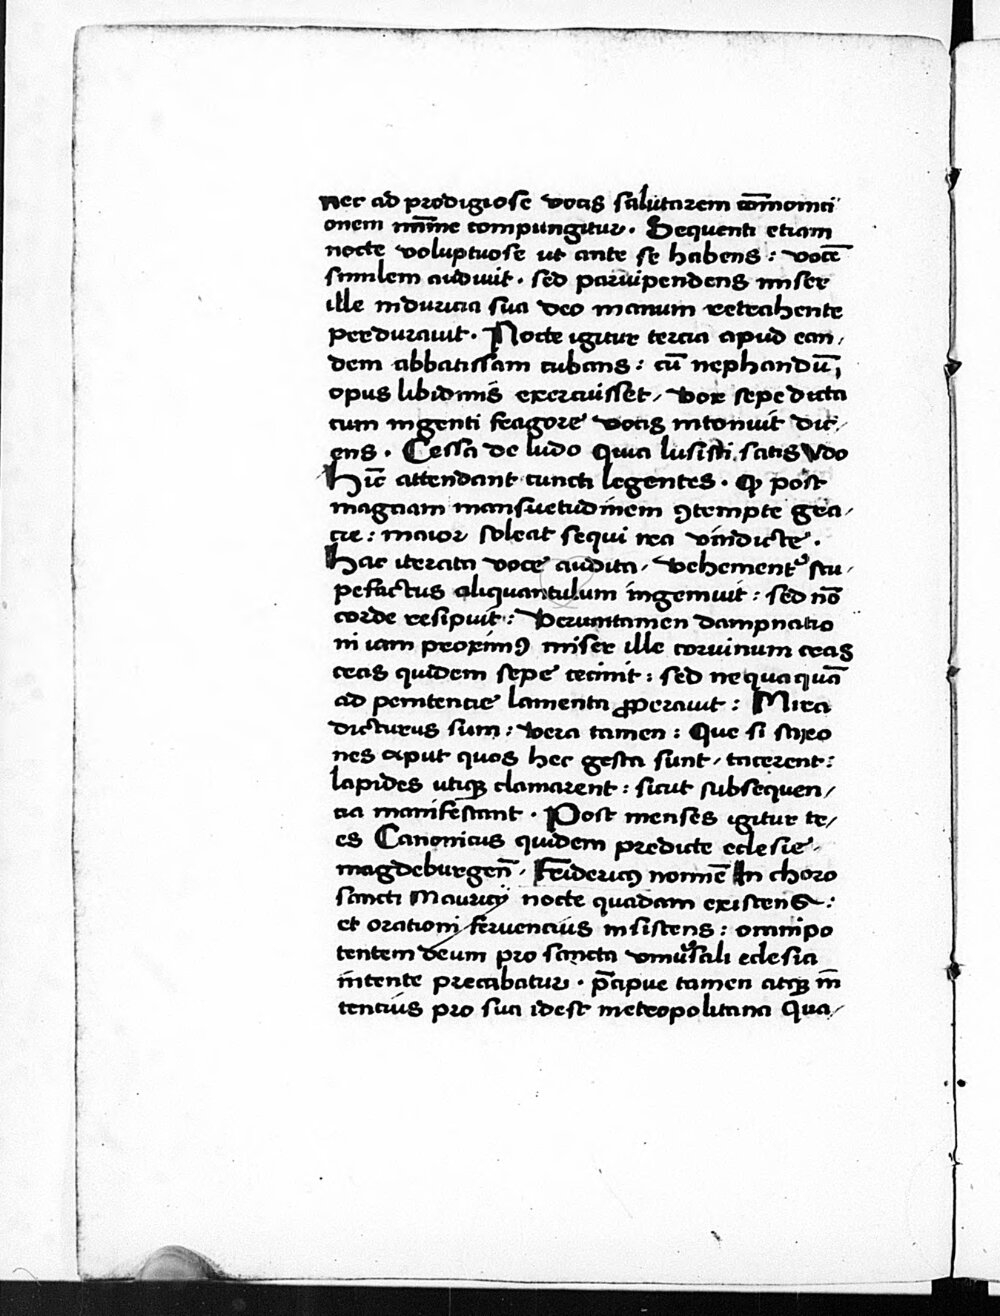 nec ad prodigiose vocis salutarem com̄onici
onem mīme compungitur. Sequenti etiam
nocte voluptuose ut ante se habens : vocē
similem audivit. sed parvipendens miser
ille induricia sua deo manum retrahente
perduravit. Nocte igitur tercia apud ean,
dem abbatissam cubans : cū nephandū,
opus libidinis exercuisset, vox sepe dicta
cum ingenti fragore vocis intonuit dic,
ens. Cessa de ludo quia lusisti satis Udo
hic̄ attendant cuncti legentes. Qꝫ post
magnam mansuetudinem ꝯtempte gra,
cie : maior soleat sequi ira vindicte.
hac iterata voce audita, vehement᷒ stu,
pefactus aliquantulum ingemuit : sed nō
corde resipuit : Verumtamen dampnatio
ni iam proximꝯ miser ille corvinum cras
cras quidem sepe cecinit : sed nequaquā
ad penitencie lamenta ꝓperavit : Mira
dicturus sum : vera tamen : Que si
nes aput quos hec gesta sunt, tacerent :
lapides utiqꝫ clamarent : sicut subsequen,
cia manifestant. Post menses igitur tr,
es Canonicus quidem predicte eclesie
magdeburgen̄. Fridericꝯ nomīe In choro
sancti Mauricij nocte quadam existens :
et orationi ferventius insistens : omnipo
tentem deum pro sancta universali eclesia
intente precabatur. p̄cipue tamen atqꝫ in̄
tencius pro sua idest metropolitana Qua,